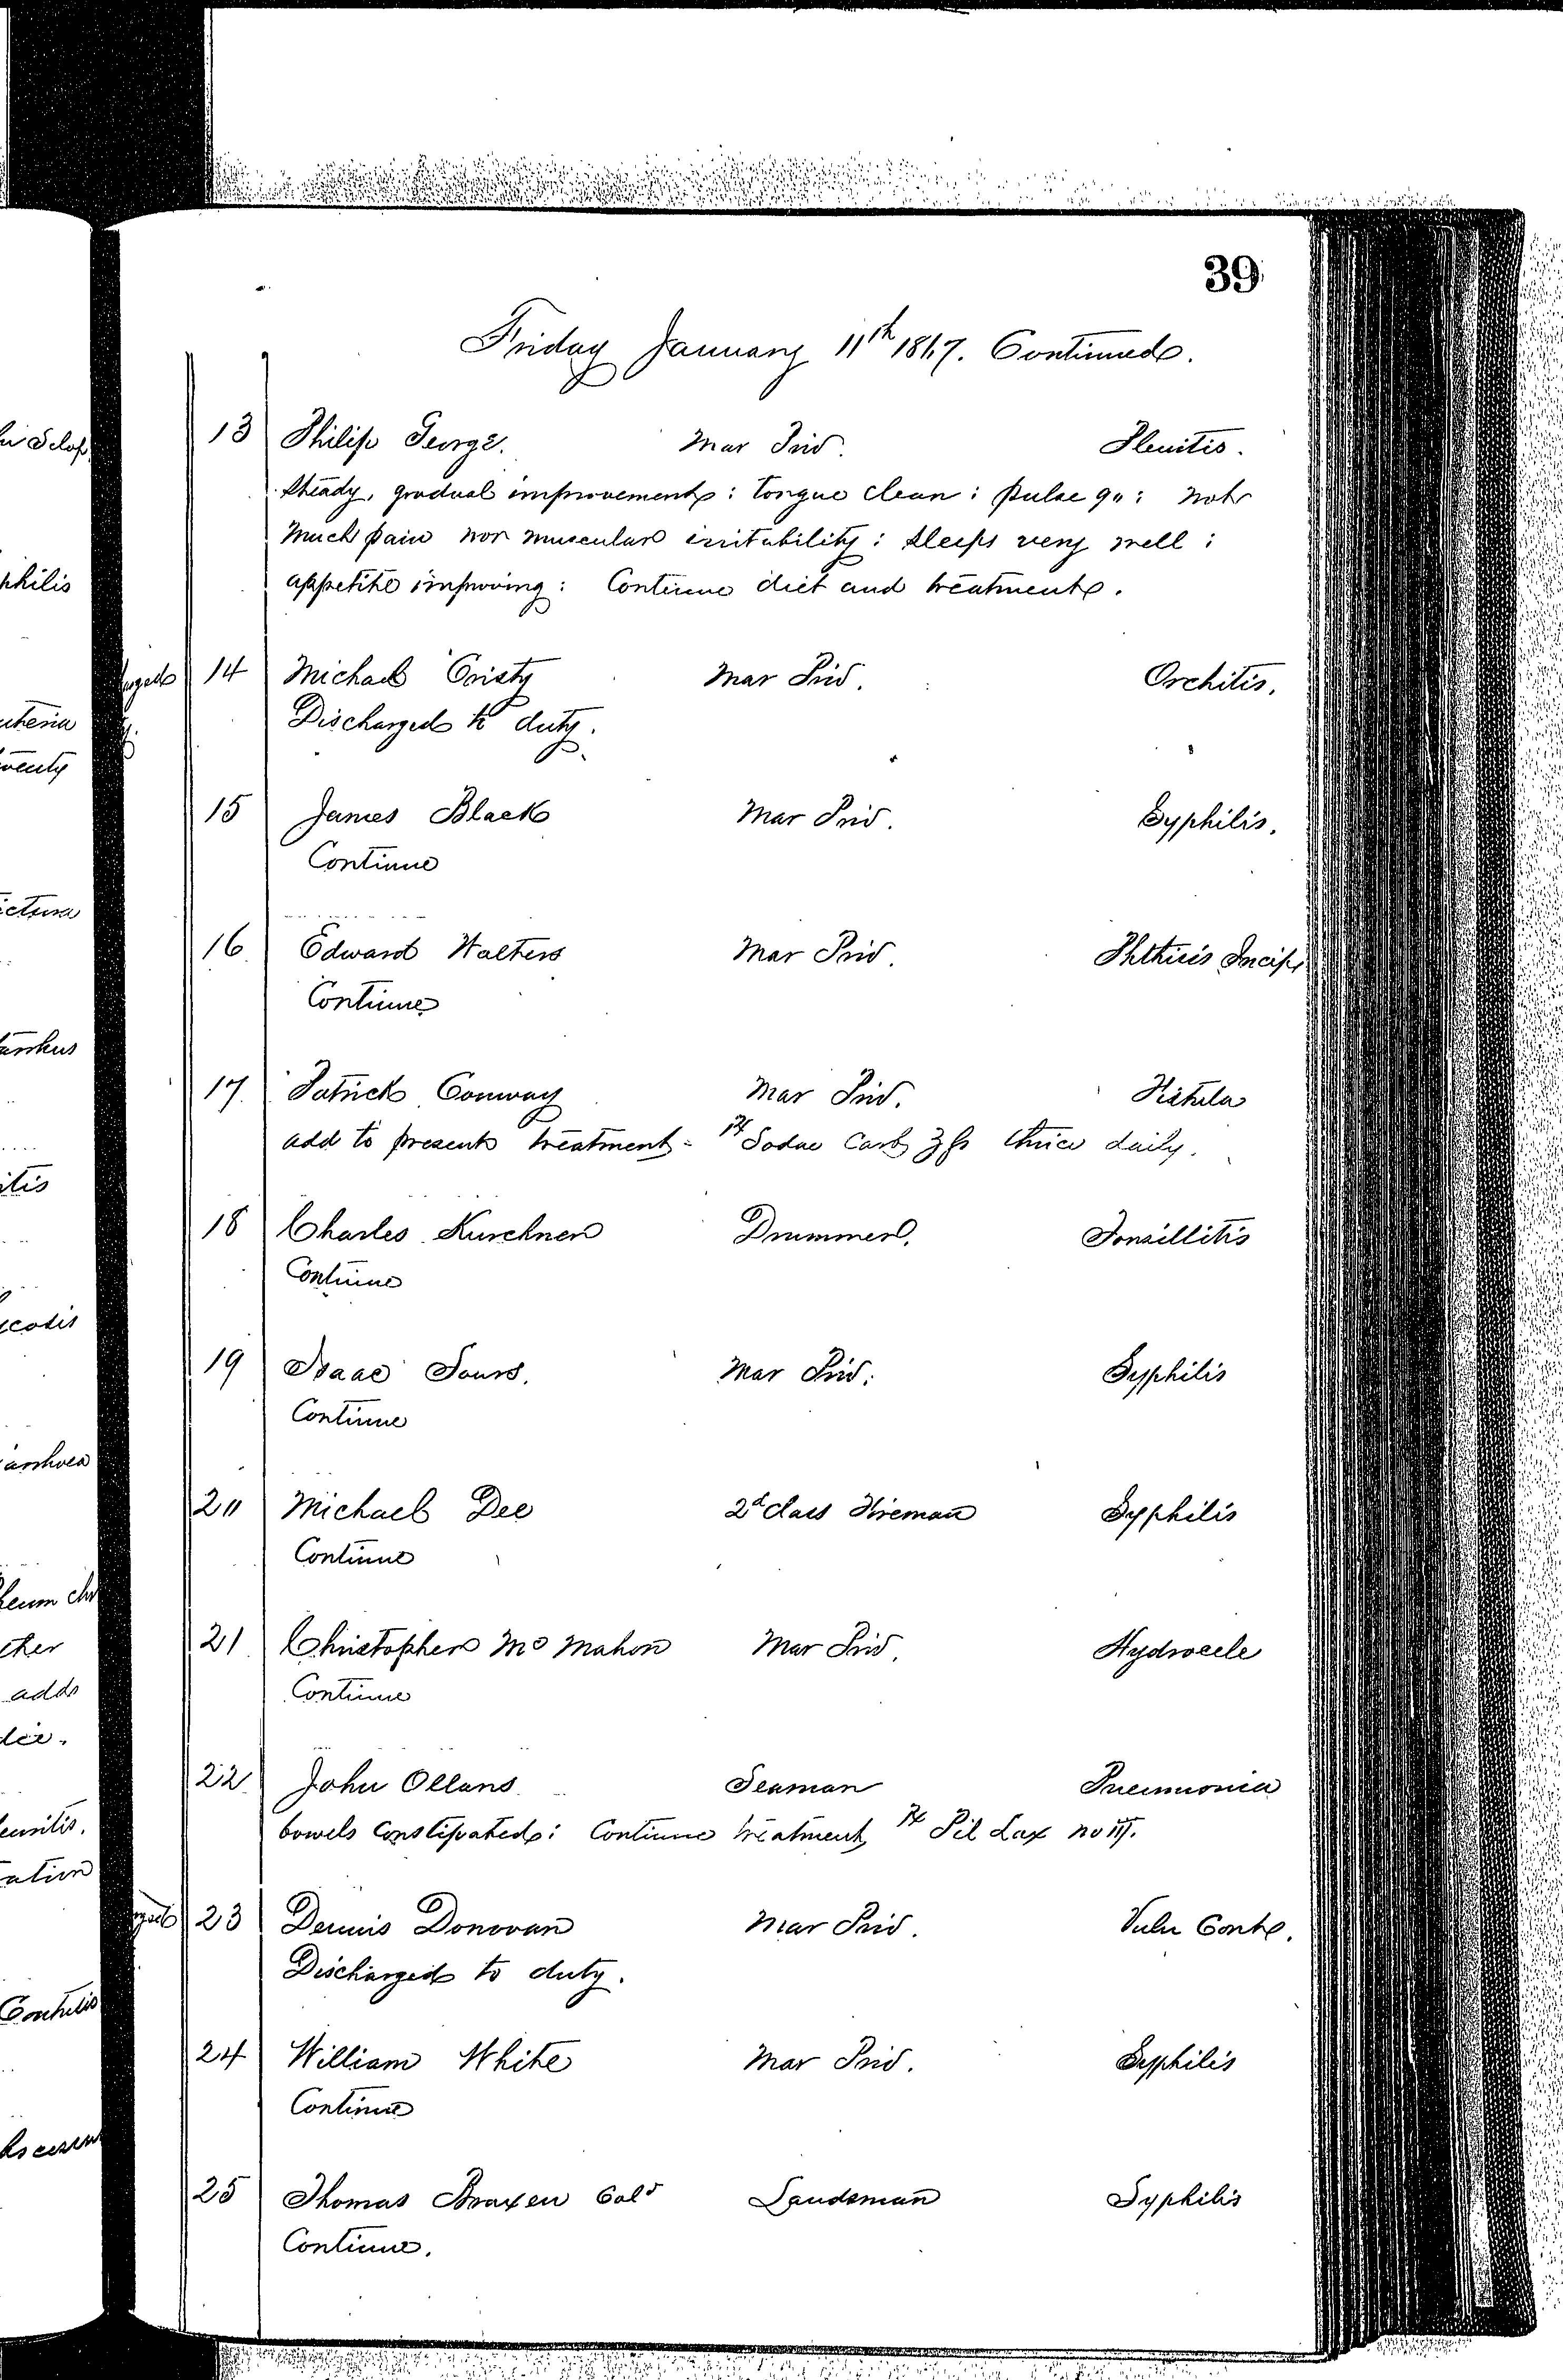 39
Friday January 11th 1867. Continued.
13 Philip George. Mar Priv. Pleuritis.
Steady, gradual improvement: tongue clean: pulse 90: not
much pain nor muscular irritability: sleeps very well:
appetite improving: Continue diet and treatment.
14 Michael Cristy Mar Priv. Orchitis.
Discharged to duty.
15 James Black Mar Priv. Syphilis.
Continue
16 Edward Walters Mar Priv. Phthisis Incip
Continue
17 Patrick Conway Mar Priv. Fistula
add to present treatment - ℞ Sodae Carb ʒfs thrice daily.
18 Charles Kurchner Drummer. Tonsillitis
Continue
19 Isaac Sours. Mar Priv. Syphilis
Continue
20 Michael Dee 2d class Fireman Syphilis
Continue
21 Christopher Mc Mahon Mar Priv. Hydrocele
Continue
22 John Ollans Seaman Pneumonia
bowels constipated: Continue treatment ℞ Pil Lax no III.
23 Dennis Donovan Mar Priv. Vuln Cont.
Discharged to duty.
24 William White Mar Priv. Syphilis
Continue
25 Thomas Braxen Cold Landsman Syphilis
Continue.